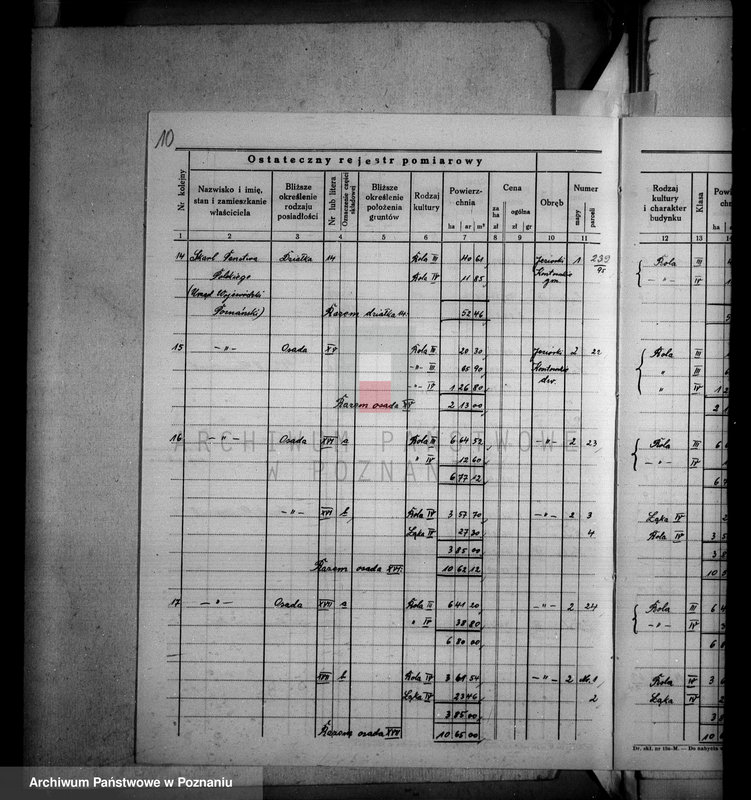 10
Ostateczny rejestr pomiarowy
Nr kolejny | Nazwisko i imię, stan i zamieszkanie właściciela | Bliższe określenie rodzaju posiadłości | Nr lub litera | Oznaczenie części składowej | Bliższe określenie położenia gruntów | Rodzaj kultury | Powierzchnia ha ar m² | Cena za ha zł ogólna zł gr | Obręb | Numer mapy parceli
1 2 3 4 5 6 7 8 9 10 11
14 Skarb Państwa Działka 14 Rola III 40 61 1 239
Polskiego Rola IV 11 85 95
(Urząd Wojewódzki
Poznański) Razem działka 14. 52 46
15 -"- Osada XV Rola III 20 30 2 22
-"- III 65 90
-"- IV 1 26 80
Razem osada XV 2 13 00
16 -"- Osada XVI a Rola III 6 64 52 -"- 2 23
" IV 12 60
6 77 12
-"- XVI b Rola IV 3 57 70 -"- 2 3
Łąka IV 27 30 4
3 85 00
Razem osada XVI. 10 62 12
17 -"- Osada XVII a Rola III 6 41 20 -"- 2 24
" IV 38 80
6 80 00
XVII b Rola IV 3 61 54 -"- 2
Łąka IV 23 46 2
3 85 00
Razem osada XVII 10 65 00
Rodzaj kultury i charakter budynku | Klasa
ha
12 13 14
Rola III
-"- IV
Rola III
" III
" IV
Rola III
-"- IV
Łąka IV
Rola IV
Rola III
-"- IV
Rola IV
Łąka IV
Dr. skł. nr 13a-M. — Do nabycia
ARCHIWUM PAŃSTWOWE
W POZNANIU
Archiwum Państwowe w Poznaniu